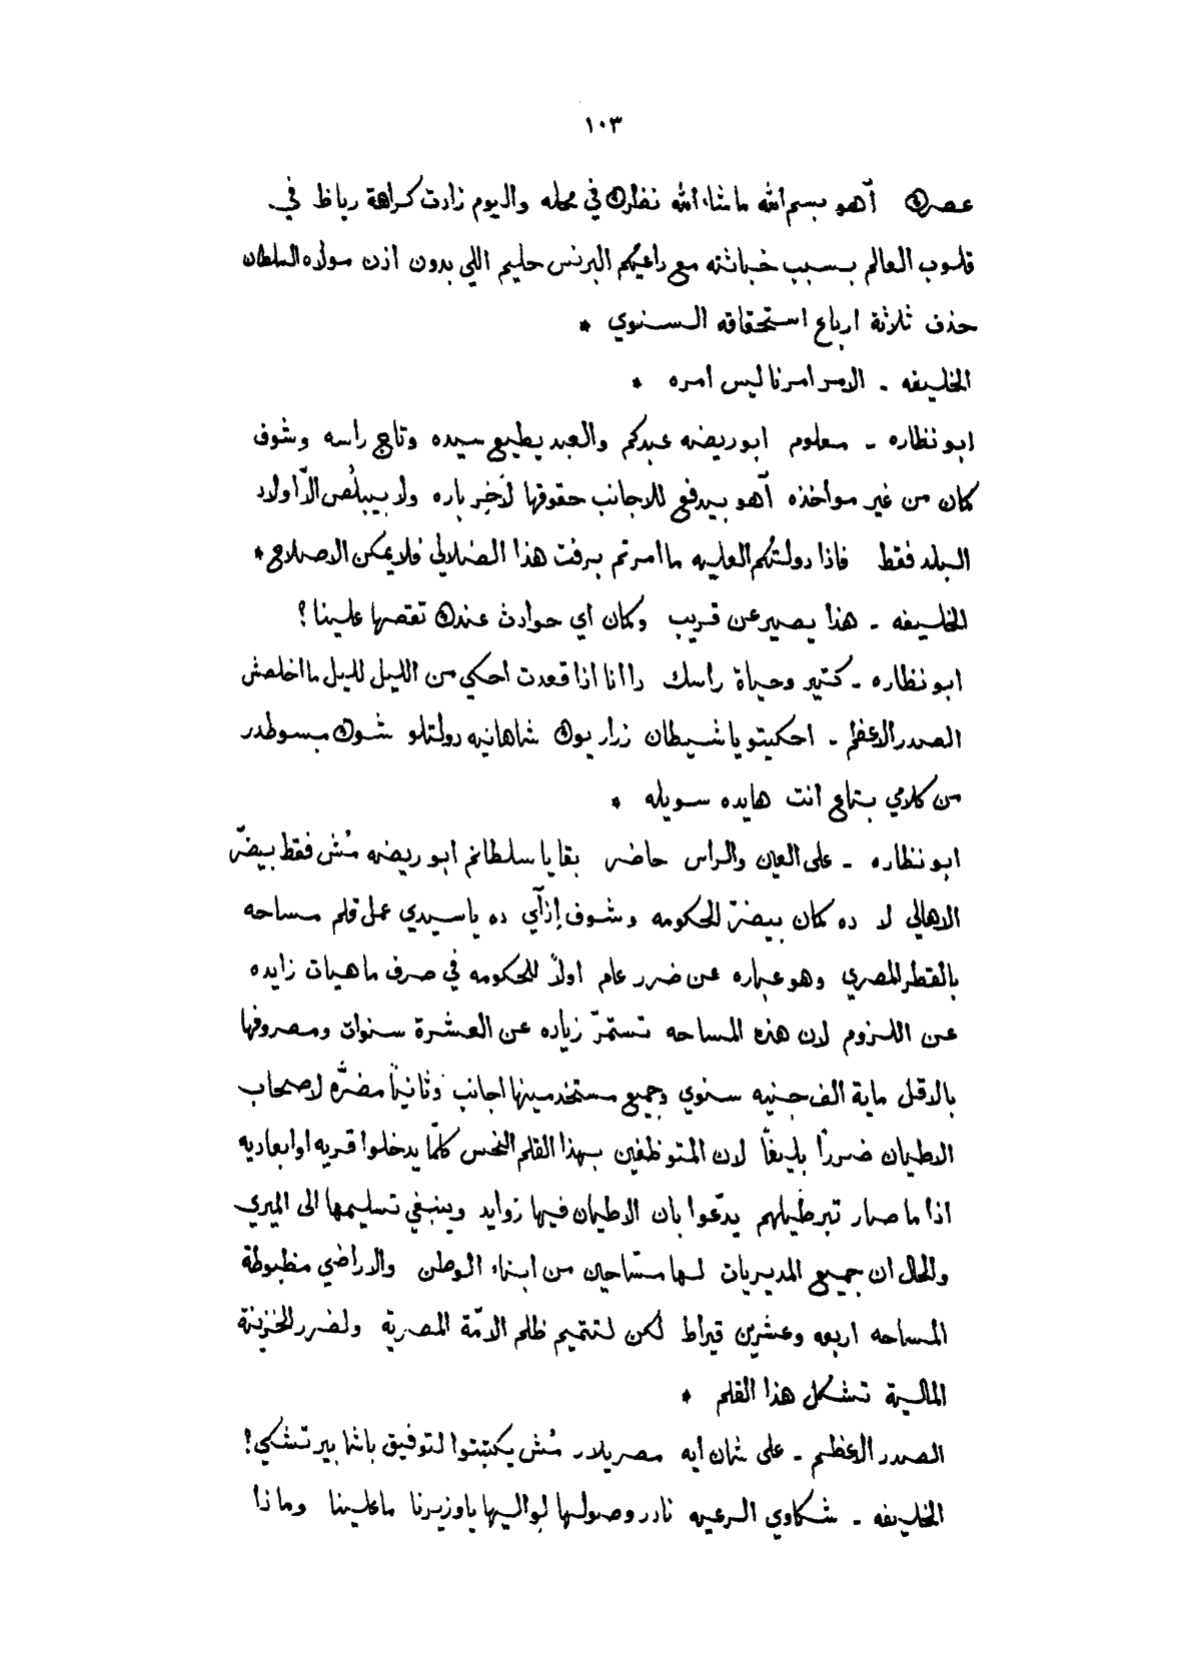 ١٠٣
عصرك آهو بسم الله ماشاء الله نظرك في محله واليوم زادت كراهة رياظ في
قلوب العالم بسبب خباثته مع راعيكم البرنس حليم اللي بدون اذن مولاه السلطان
حذف ثلاثة ارباع استحقاقه السنوي *
الخليفه - الامر امرنا ليس امره *
ابو نظاره - معلوم ابو ريضه عبدكم والعبد يطيع سيده وتاج راسه وشوف
كمان من غير مواخذه آهو بيدفع للاجانب حقوقها لآخر باره ولا بيبلُص الّا اولاد
البلد فقط فاذا دولتكم العليه ما امرتم برفت هذا الضلالي فلا يمكن الاصلاح *
الخليفه - هذا يصير عن قريب وكمان اي حوادث عندك تقصها علينا ؟
ابو نظاره - كتير وحياة راسك دا انا اذا قعدت احكي من الليل لليل ما اخلصش
الصدر الاعظم - احكيتو يا شيطان زرار يوك شاهانيه دولتلو شوك مبسوطدر
من كلامي بتاع انت هايده سويله *
ابو نظاره - على العين والراس حاضر بقا يا سلطانم ابو ريضه مُش فقط بيضرّ
الاهالي لا ده كمان بيضرّ الحكومه وشوف إزآي ده يا سيدي عمل قلم مساحه
بالقطر المصري وهو عباره عن ضرر عام اولاً للحكومه في صرف ماهيات زايده
عن اللزوم لان هذه المساحه تستمرّ زياده عن العشرة سنوات ومصروفها
بالاقل ماية الف جنيه سنوي وجميع مستخدمينها اجانب وثانياً مضرّه لاصحاب
الاطيان ضررًا بليغًا لان المتوظفين بهذا القلم النحس كلمّا يدخلوا قريه او ابعاديه
اذا ما صار تبرطيلهم يدّعوا بان الاطيان فيها زوايد وينبغي تسليمها الى الميري
والحال ان جميع المديريات لها مسّاحين من ابناء الوطن والاراضي مظبوطة
المساحه اربعه وعشرين قيراط لكن لتتميم ظلم الامّة المصرية ولضرر الخزينة
المالية تشكل هذا القلم *
الصدر الاعظم - على شان ايه مصريلار مُش يكتبتوا لتوفيق باشا بير تشكي !
الخليفه - شكاوي الرعيه نادر وصولها لواليها يا وزيرنا ما علينا وماذا